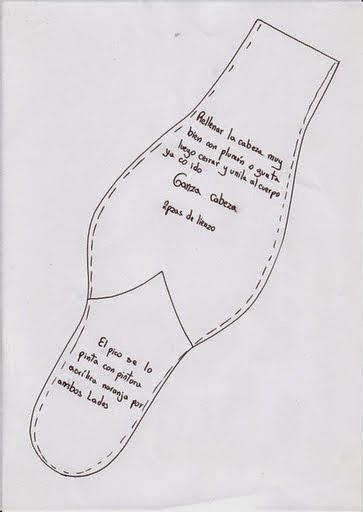 Rellenar la cabeza muy
bien con plumón o guata
luego cerrar y unirla al cuerpo
ya co ido
Ganza cabeza
2pzas de lienzo
El pico se lo
pinta con pintura
acrílica naranja por
ambos Lados